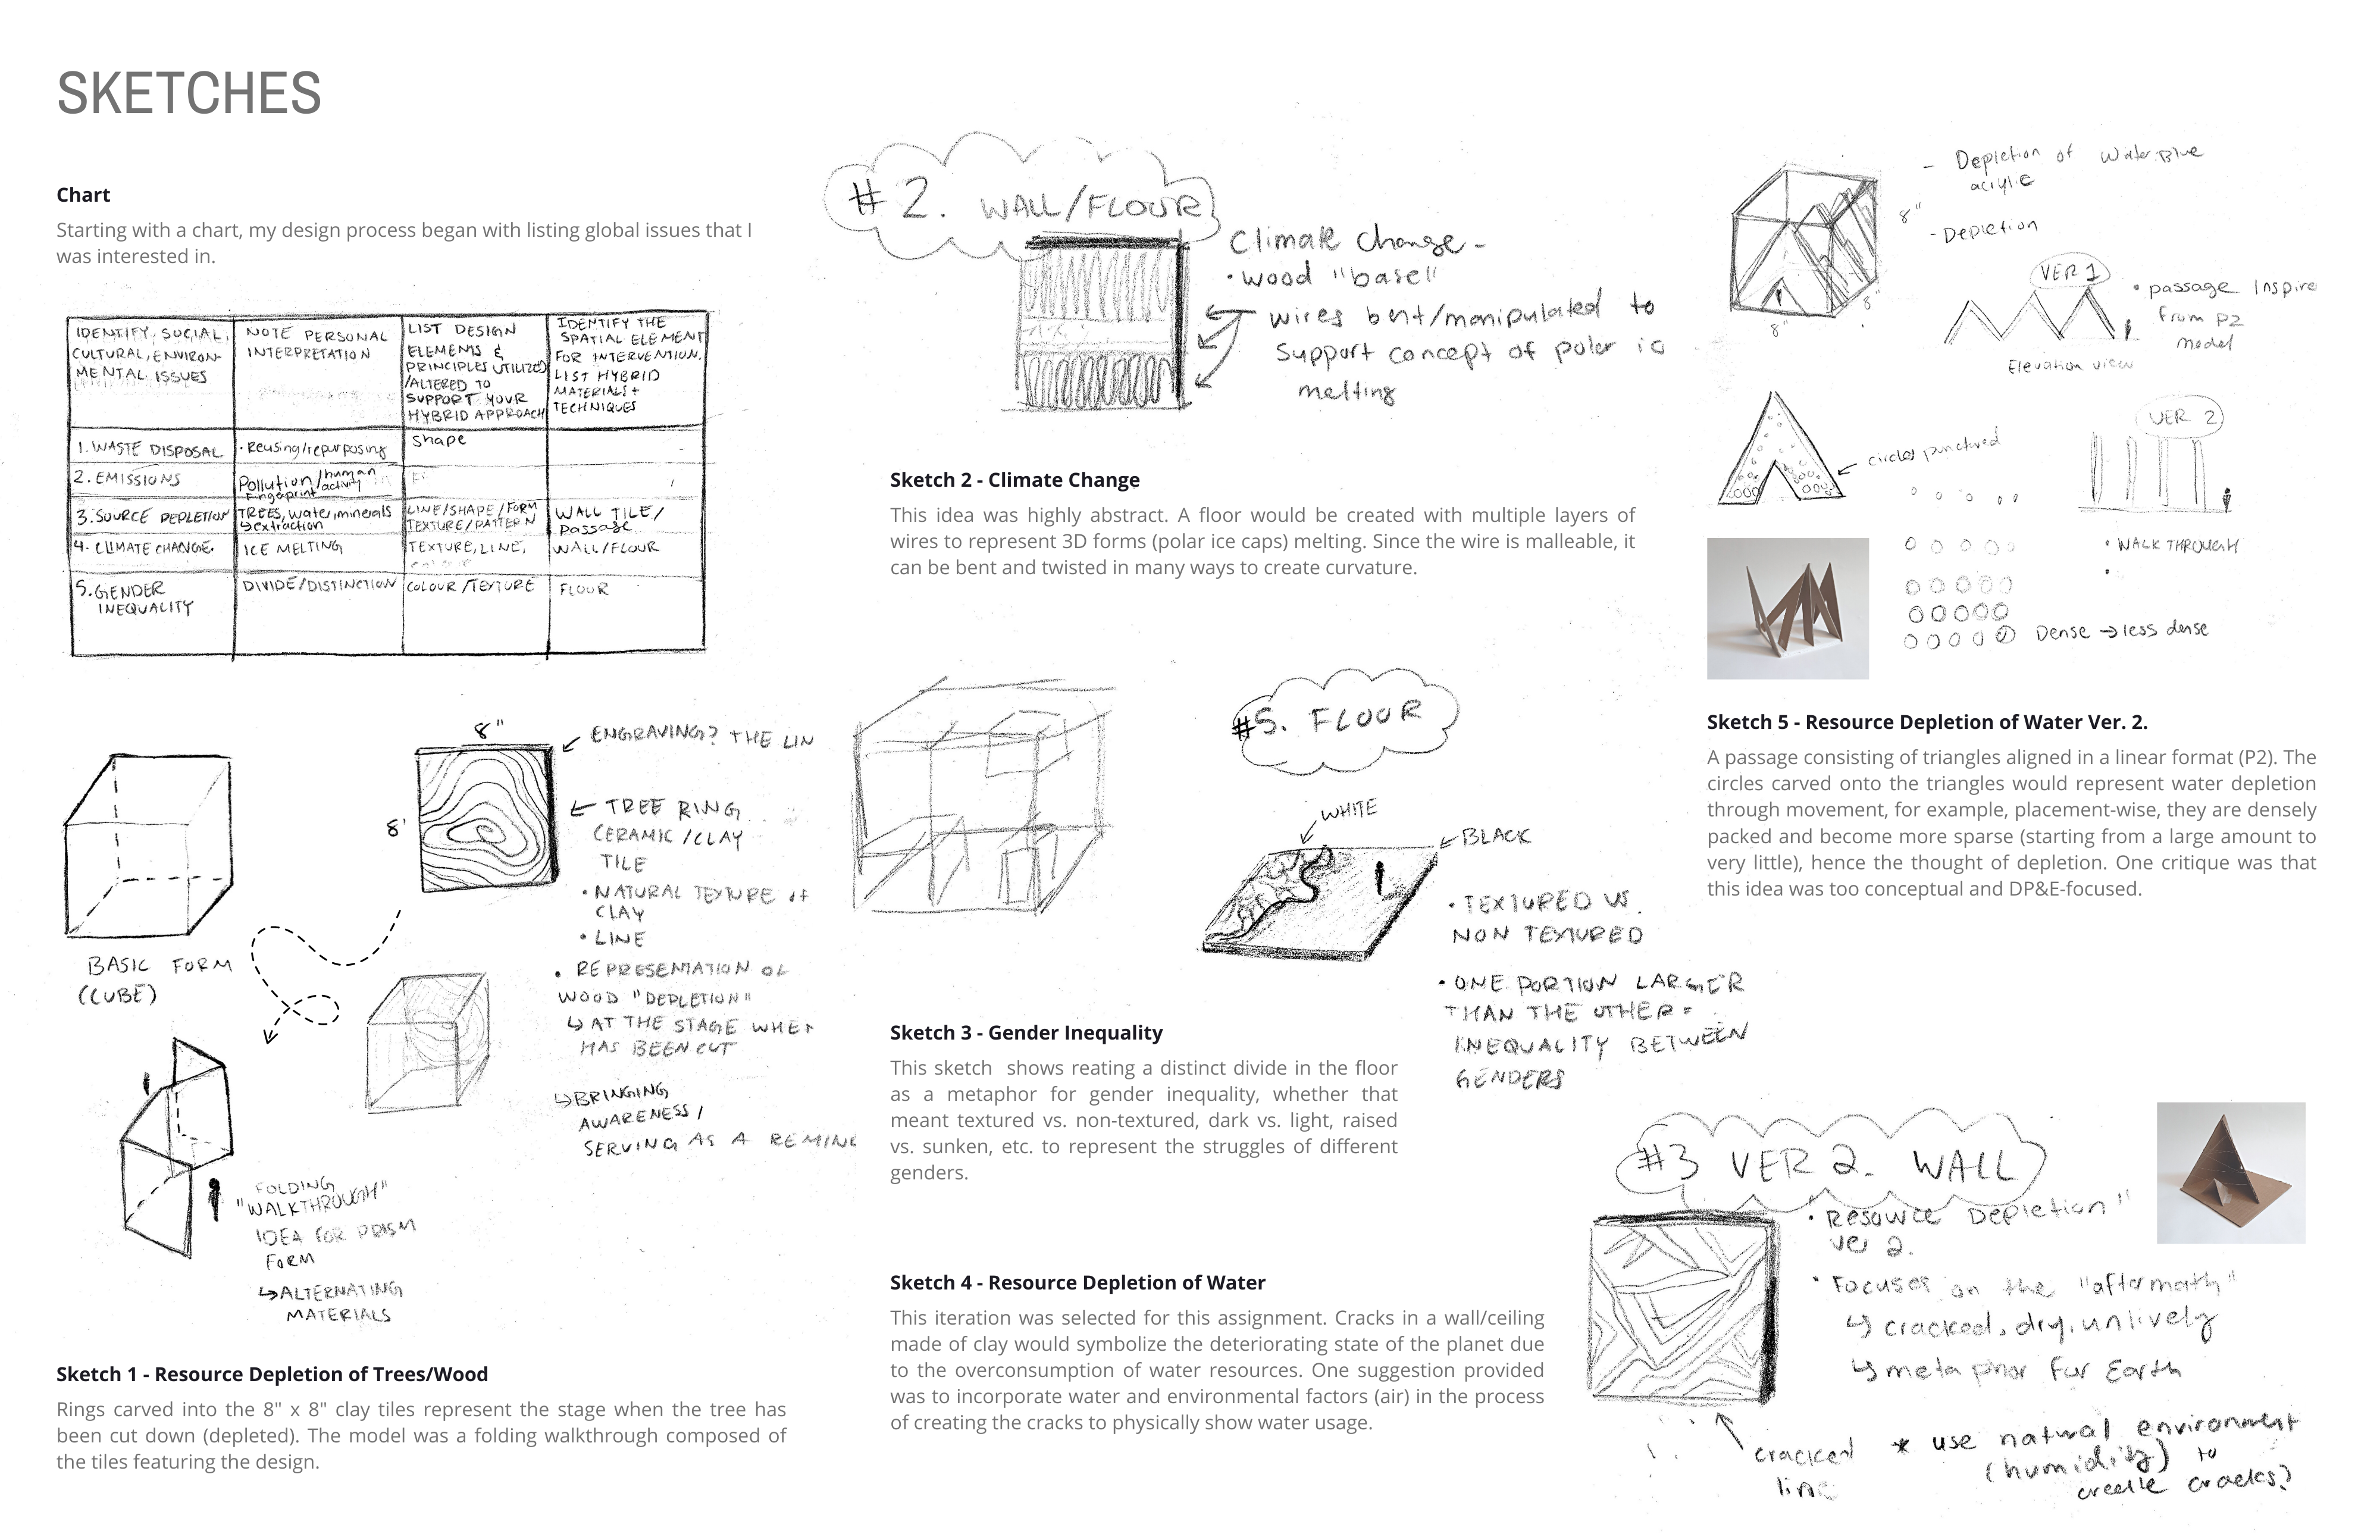 SKETCHES
Chart
Starting with a chart, my design process began with listing global issues that I
was interested in.
IDENTIFY SOCIAL,
CULTURAL, ENVIRON-
MENTAL ISSUES
NOTE PERSONAL
INTERPRETATION
LIST DESIGN
ELEMENTS &
PRINCIPLES UTILIZED
/ALTERED TO
SUPPORT YOUR
HYBRID APPROACH
IDENTIFY THE
SPATIAL ELEMENT
FOR INTERVENTION.
LIST HYBRID
MATERIALS +
TECHNIQUES
1. WASTE DISPOSAL
• Reusing/repurposing
shape
2. EMISSIONS
Pollution/human
activity
Fingerprint
3. SOURCE DEPLETION
TREES, water, minerals
↳ extraction
LINE/SHAPE/FORM
TEXTURE/PATTERN
WALL TILE/
Passage
4. CLIMATE CHANGE.
ICE MELTING
TEXTURE, LINE,
WALL/FLOUR
5. GENDER
INEQUALITY
DIVIDE/DISTINCTION
COLOUR/TEXTURE
FLOOR
BASIC FORM
(CUBE)
8"
8'
ENGRAVING? THE LIN
TREE RING
CERAMIC/CLAY
TILE
• NATURAL TEXTURE of
CLAY
• LINE
• REPRESENTATION OF
WOOD "DEPLETION"
↳ AT THE STAGE WHEN
HAS BEEN CUT
↳ BRINGING
AWARENESS/
SERVING AS A REMIN
FOLDING
"WALKTHROUGH"
IDEA FOR PRISM
FORM
↳ ALTERNATING
MATERIALS
Sketch 1 - Resource Depletion of Trees/Wood
Rings carved into the 8" x 8" clay tiles represent the stage when the tree has
been cut down (depleted). The model was a folding walkthrough composed of
the tiles featuring the design.
#2. WALL/FLOUR
Climate change -
• wood "base"
wires bent/manipulated to
support concept of polar ic
melting
Sketch 2 - Climate Change
This idea was highly abstract. A floor would be created with multiple layers of
wires to represent 3D forms (polar ice caps) melting. Since the wire is malleable, it
can be bent and twisted in many ways to create curvature.
#5. FLOUR
WHITE
BLACK
• TEXTURED VS.
NON TEXTURED
• ONE PORTION LARGER
THAN THE OTHER =
INEQUALITY BETWEEN
GENDERS
Sketch 3 - Gender Inequality
This sketch shows reating a distinct divide in the floor
as a metaphor for gender inequality, whether that
meant textured vs. non-textured, dark vs. light, raised
vs. sunken, etc. to represent the struggles of different
genders.
Sketch 4 - Resource Depletion of Water
This iteration was selected for this assignment. Cracks in a wall/ceiling
made of clay would symbolize the deteriorating state of the planet due
to the overconsumption of water resources. One suggestion provided
was to incorporate water and environmental factors (air) in the process
of creating the cracks to physically show water usage.
- Depletion of Water: Blue
acrylic
- Depletion
8"
8"
8"
VER 1
• passage Inspire
from P2
model
Elevation view
circles punctured
VER 2
• WALK THROUGH
Dense → less dense
Sketch 5 - Resource Depletion of Water Ver. 2.
A passage consisting of triangles aligned in a linear format (P2). The
circles carved onto the triangles would represent water depletion
through movement, for example, placement-wise, they are densely
packed and become more sparse (starting from a large amount to
very little), hence the thought of depletion. One critique was that
this idea was too conceptual and DP&E-focused.
#3 VER 2. WALL
• Resource Depletion"
ver 2.
• Focuses on the "aftermath"
↳ cracked, dry, unlively
↳ metaphor for Earth
cracked
line
* use natural environment
(humidity) to
create cracks?